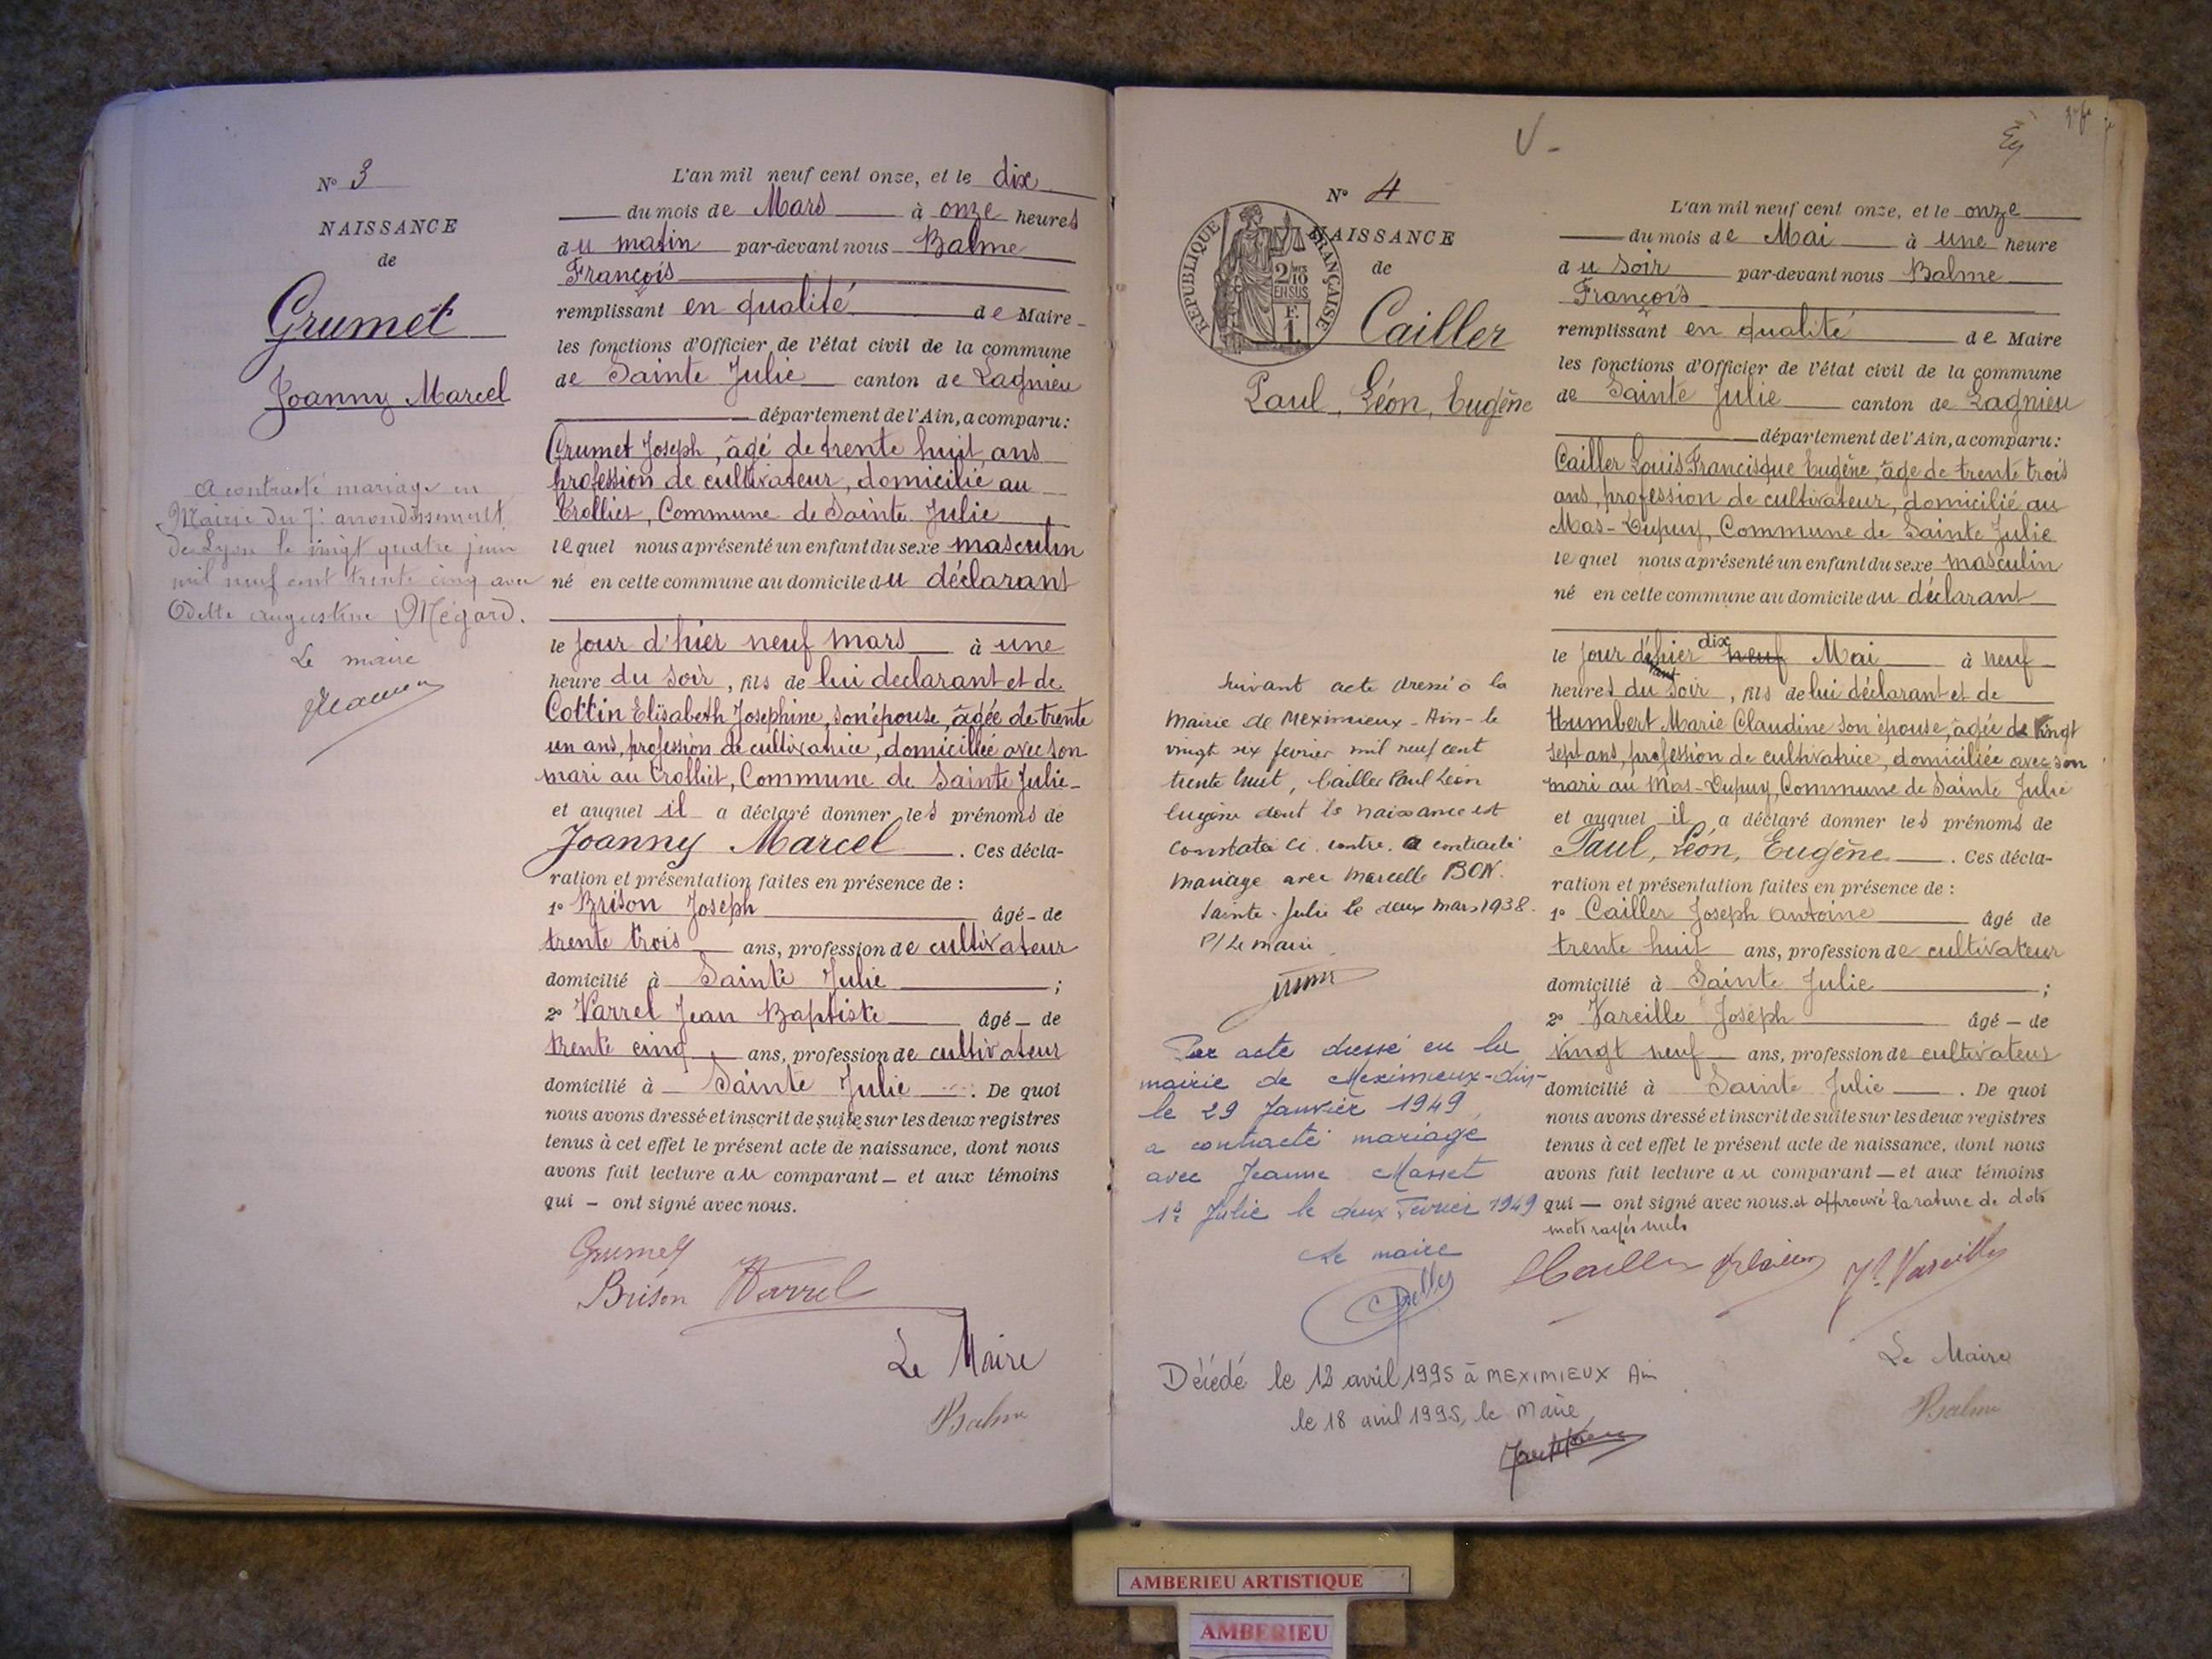 N° 3
NAISSANCE
de
Grumet
Joanny Marcel
A contracté mariage en
Mairie du 7e arrondissement
de Lyon le vingt quatre juin
mil neuf cent trente cinq avec
Odette Augustine Mégard.
Le maire
L'an mil neuf cent onze, et le dix
du mois de Mars à onze heures
du matin par-devant nous Balme
François
remplissant en qualité de Maire
les fonctions d'Officier de l'état civil de la commune
de Sainte Julie canton de Lagnieu
département de l'Ain, a comparu:
Grumet Joseph, âgé de trente huit ans
profession de cultivateur, domicilié au
Trolliet, Commune de Sainte Julie
lequel nous a présenté un enfant du sexe masculin
né en cette commune au domicile du déclarant
le jour d'hier neuf mars à une
heure du soir, fils de lui declarant et de
Cottin Elisabeth Josephine, son épouse, âgée de trente
un ans, profession de cultivatrice, domiciliée avec son
mari au Trolliet, Commune de Sainte Julie
et auquel il a déclaré donner les prénoms de
Joanny Marcel. Ces décla-
ration et présentation faites en présence de :
1° Brison Joseph âgé de
trente trois ans, profession de cultivateur
domicilié à Sainte Julie ;
2° Varrel Jean Baptiste âgé de
trente cinq ans, profession de cultivateur
domicilié à Sainte Julie. De quoi
nous avons dressé et inscrit de suite sur les deux registres
tenus à cet effet le présent acte de naissance, dont nous
avons fait lecture au comparant et aux témoins
qui ont signé avec nous.
Grumet
Brison Varrel
Le Maire
Balme
V -
N° 4
REPUBLIQUE FRANÇAISE
2/10 EN SUS
F. 1
NAISSANCE
de
Cailler
Paul, Léon, Eugène
Suivant acte dressé à la
Mairie de Meximieux - Ain - le
vingt six fevrier mil neuf cent
trente huit, Cailler Paul Léon
Eugène dont la naissance est
constatée ci. contre. a contracté
mariage avec Marcelle BON.
Sainte-Julie le deux mars 1938.
P/ Le maire
Par acte dressé en la
mairie de Meximieux-Ain-
le 29 Janvier 1949
a contracté mariage
avec Jeanne Masset
Ste Julie le deux Fevrier 1949
Le maire
Décédé le 12 avril 1995 à MEXIMIEUX Ain
le 18 avril 1995, le Maire
L'an mil neuf cent onze, et le onze
du mois de Mai à une heure
du soir par-devant nous Balme
François
remplissant en qualité de Maire
les fonctions d'Officier de l'état civil de la commune
de Sainte Julie canton de Lagnieu
département de l'Ain, a comparu:
Cailler Louis Francisque Eugène, âgé de trente trois
ans, profession de cultivateur, domicilié au
Mas-Dupuy, Commune de Sainte Julie
lequel nous a présenté un enfant du sexe masculin
né en cette commune au domicile du déclarant
le jour d'hier dix neuf Mai à neuf
heures du soir, fils de lui déclarant et de
Humbert Marie Claudine son épouse, âgée de vingt
sept ans, profession de cultivatrice, domiciliée avec son
mari au Mas-Dupuy, Commune de Sainte Julie
et auquel il a déclaré donner les prénoms de
Paul, Léon, Eugène. Ces décla-
ration et présentation faites en présence de :
1° Cailler Joseph antoine âgé de
trente huit ans, profession de cultivateur
domicilié à Sainte Julie ;
2° Vareille Joseph âgé de
vingt neuf ans, profession de cultivateur
domicilié à Sainte Julie. De quoi
nous avons dressé et inscrit de suite sur les deux registres
tenus à cet effet le présent acte de naissance, dont nous
avons fait lecture au comparant et aux témoins
qui ont signé avec nous. et approuvé la rature de
mots rayés nuls
Cailler Cailler Js Vareille
Le Maire
Balme
AMBERIEU ARTISTIQUE
AMBERIEU